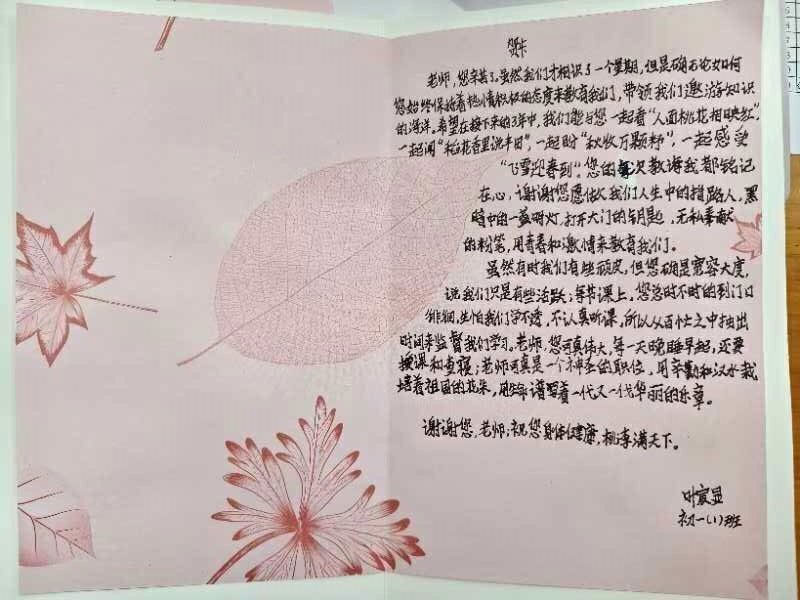 贺卡
老师，您辛苦了。虽然我们才相识了一个星期，但是确无论如何
您始终保持着热情积极的态度来教育我们，带领我们遨游知识
的海洋。希望在接下来的3年中，我们能与您一起看“人面桃花相映红”，
一起闻“稻花香里说丰田”，一起盼“秋收万颗籽”，一起感受
“飞雪迎春到”。您的每次教诲我都铭记
在心，谢谢您愿做我们人生中的指路人，黑
暗中的一盏明灯，打开大门的钥匙，无私奉献
的粉笔，用青春和激情来教育我们。
虽然有时我们有些顽皮，但您确是宽容大度，
说我们只是有些活跃；每节课上，您总时不时的到门口
徘徊，生怕我们学不透，不认真听课，所以从百忙之中抽出
时间来监督我们学习。老师，您可真伟大，每一天晚睡早起，还要
授课和查寝；老师可真是一个神圣的职位，用辛勤和汉水栽
培着祖国的花朵，用生命谱写着一代又一代华丽的乐章。
谢谢您，老师；祝您身体健康，桃李满天下。
叶宸显
初一(1)班